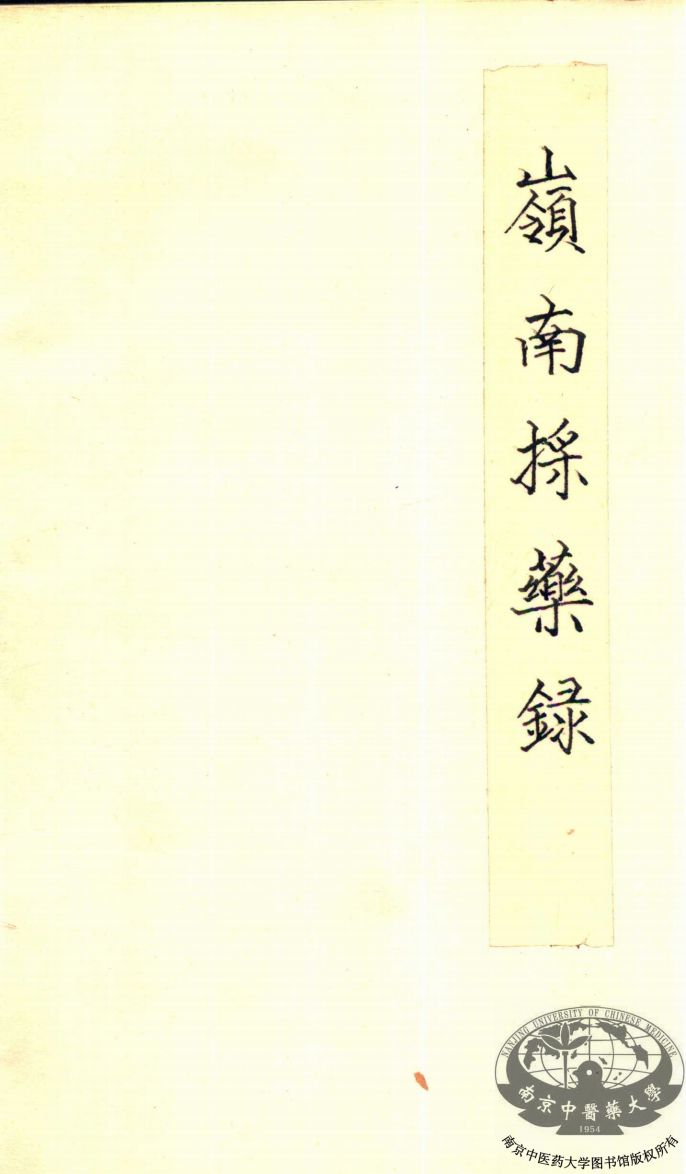 嶺南採藥録
NANJING UNIVERSITY OF CHINESE MEDICINE
南京中醫藥大學
1954
南京中医药大学图书馆版权所有